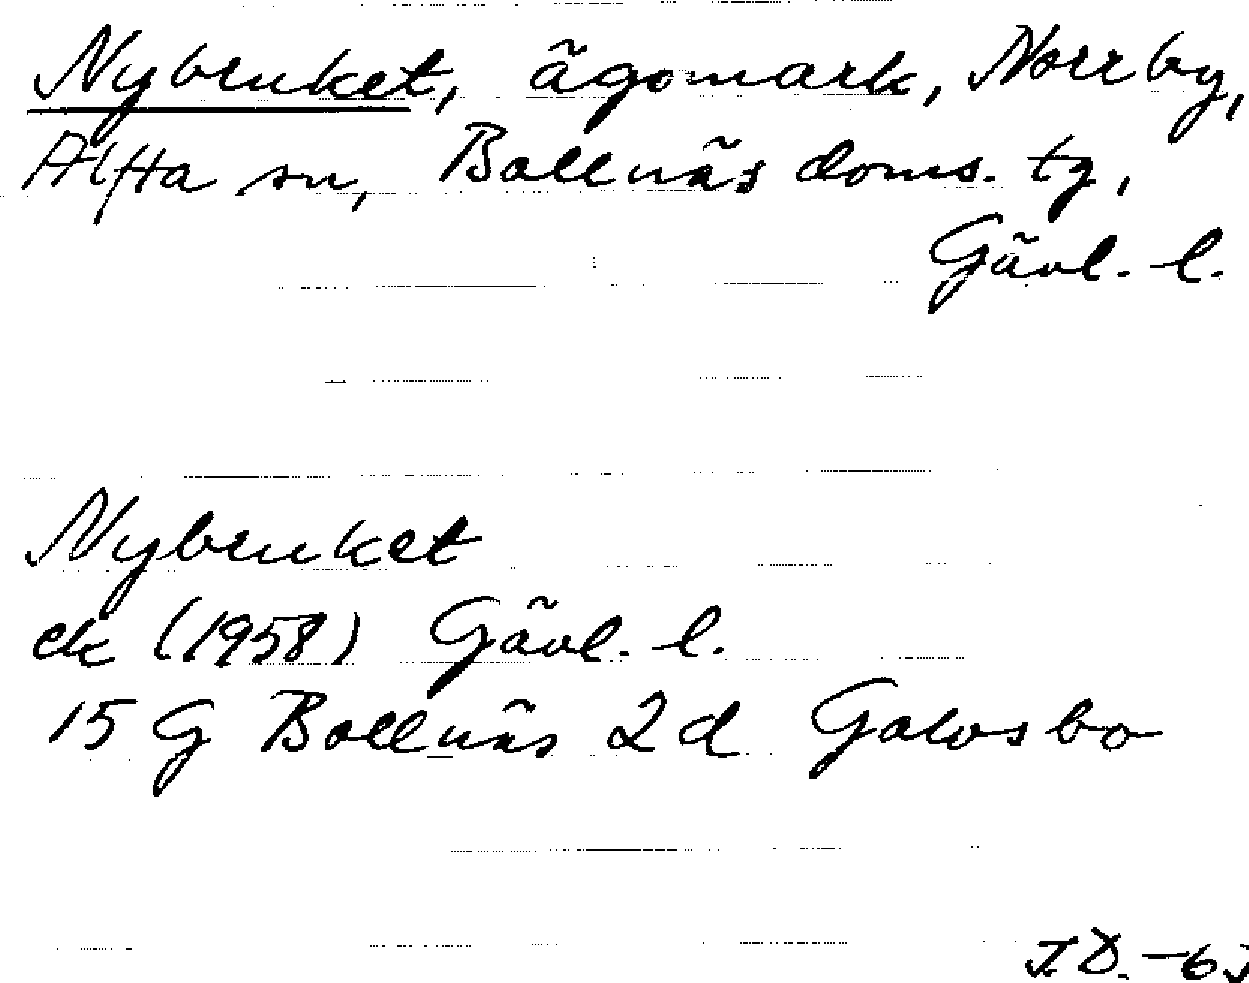 Nybruket, ägomark, Norrby,
Alfta sn, Bollnäs doms. tg,
Gävl. l.
Nybruket
ek (1958) Gävl. l.
15 G Bollnäs 2d Galvsbo
J.D. - 63